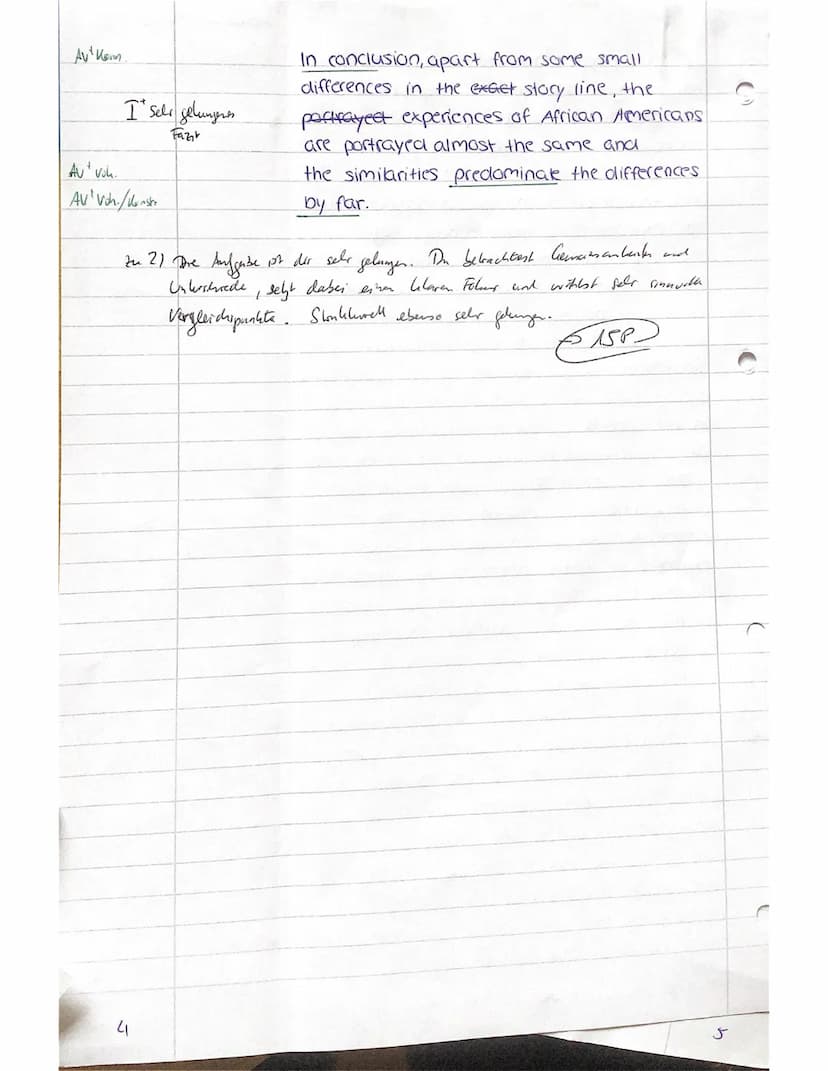 AV⁺ Konn.
In conclusion, apart from some small
differences in the exact story line, the
I⁺ sehr gelungenes
Fazit
portrayed experiences of African Americans
are portrayed almost the same and
AV⁺ Vok.
the similarities predominate the differences
AV⁺ Vok./Konstr.
by far.
zu 2) Die Aufgabe ist dir sehr gelungen. Du betrachtest Gemeinsamkeiten und
Unterschiede, setzt dabei einen klaren Fokus und wählst sehr sinnvolle
Vergleichspunkte. Strukturell ebenso sehr gelungen.
→ 15P
4
5